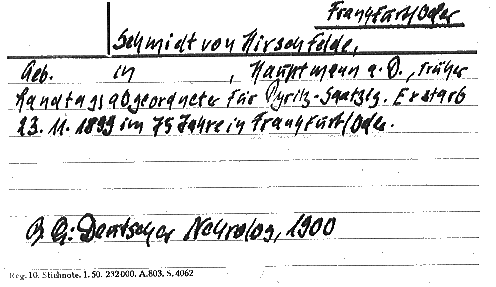 Frankfurt/Oder
Schmidt von Hirschfelde,
Geb. in , Hauptmann a.D., früher
Landtagsabgeordneter für Pyritz-Saatzig. Er starb
23. 11. 1899 im 75 Jahre in Frankfurt/Oder.
B G: Deutscher Nekrolog, 1900
Reg. 10. Stichnote. 1. 50. 232000. A.803. S. 4062